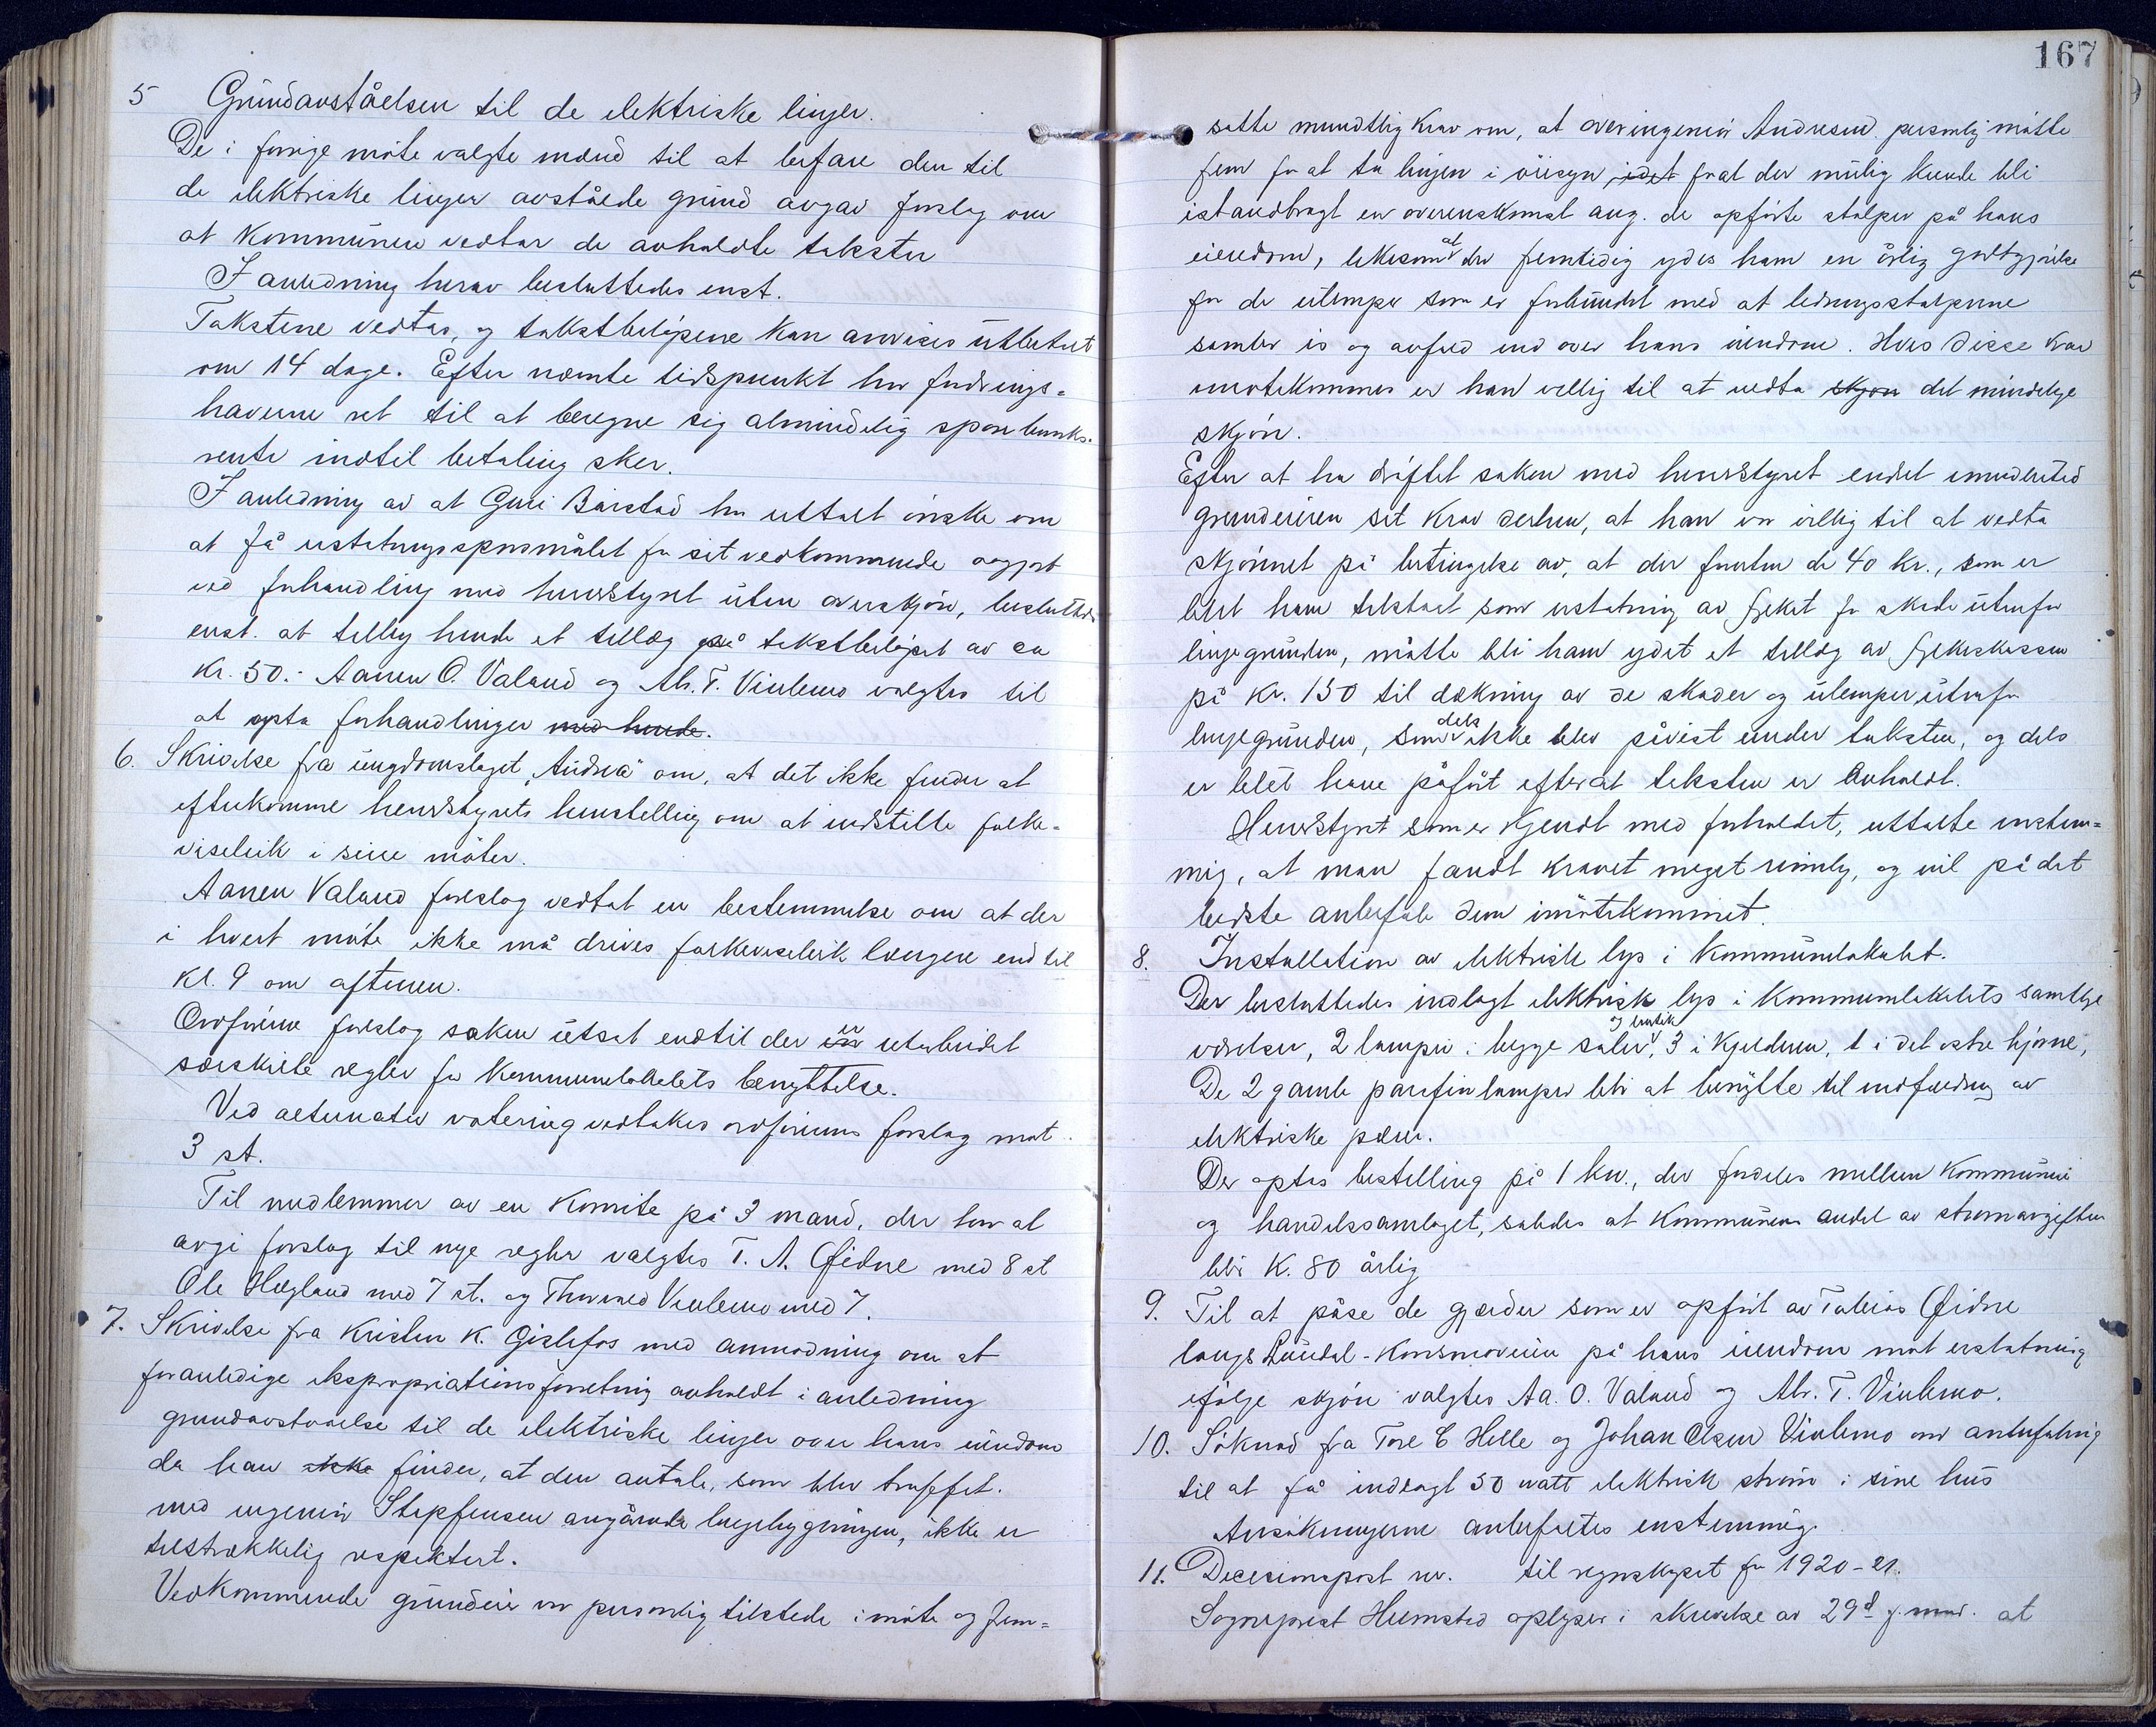 5 Grundavståelsen til de elektriske linjer.
De i forrige møte valgte mænd til at befare den til
de elektriske linjer avståede grund avgav forslag om
at kommunen vedtar de avholdte takster
I anledning herav besluttedes enst.
Takstene vedtas, og takstbeløpene kan anvises utbetalt
om 14 dage. Efter nævnte tidspunkt har fordrings-
haverne ret til at beregne sig almindelig sparebanks-
rente indtil betaling sker.
I anledning av at Guri Bårstad har uttalt ønske om
at få erstatningsspørsmålet for sit vedkommende avgjort
ved forhandling med herredstyret uten overskjøn, besluttedes
enst. at tillegg hende et tillæg på takstbeløpet av ca
kr. 50.- Aanen O. Valand og Alr. T. Vinlemo valgtes til
at opta forhandlinger med hende.
6. Skrivelse fra ungdomslaget "Audna" om, at det ikke finder at
efterkomme herredstyrets henstelling om at indstille folke-
viseleik i sine møter.
Aanen Valand foreslog vedtat en bestemmelse om at der
i hvert møte ikke må drives folkeviseleik længere end til
kl. 9 om aftenen.
Ordføreren foreslog saken utsat indtil der er utarbeidet
særskilte regler for kommunelokalets benyttelse.
Ved alternativ votering vedtakes ordførerens forslag mot
3 st.
Til medlemmer av en komite på 3 mand, der har at
avgi forslag til nye regler valgtes T. A. Øidne med 8 st
Ole Høgland med 7 st. og Thormod Vinlemo med 7.
7. Skrivelse fra Kristen K. Gislefos med anmodning om at
foranledige ekspropriationsforretning avholdt i anledning
grundavståelse til de elektriske linjer over hans eiendom
da han ikke finder, at den avtale, som blev truffet
med ingeniør Steffensen angående linjebygningen, ikke er
tilstrækkelig respektert.
Vedkommende grundeier var personlig tilstede i møte og frem-
167
satte mundtlig krav om, at overingeniør Andresen personlig måtte
frem for at ta linjen i øiesyn, idet for at der mulig kunde bli
istandbragt en overenskomst ang. de opførte stolper på hans
eiendom, likesom at der fremtidig ydes ham en årlig godtgjørelse
for de ulemper som er forbundet med at ledningsstolperne
samler is og avfald ind over hans eiendom. Hvis disse krav
imøtekommes er han villig til at vedta skjøn det mindelige
skjøn.
Efter at ha drøftet saken med herredstyret endret imidlertid
grundeieren sit krav derhen, at han var villig til at vedta
skjønnet på betingelse av, at der foruten de 40 kr., som er
blit ham tilstaat som erstatning av fylket for skade utenfor
linjegrunden, måtte bli ham ydet et tillæg av fylkeskassen
på kr. 150 til dækning av de skader og ulemper utenfor
linjegrunden, som dels ikke blev påvist under taksten, og dels
er blet ham påført efter at taksten er avholdt.
Herredstyret som er kjendt med forholdet, uttalte enstem-
mig, at man fandt kravet meget rimelig, og vil på det
bedste anbefale dem imøtekommet.
8. Installation av elektrisk lys i Kommunelokalet.
Der besluttedes indlagt elektrisk lys i Kommunelokalets samtlige
værelser, 2 lamper i begge saler, og butik 3 i kjelderen, 1 i det østre hjørne,
De 2 gamle parafinlamper blir at benytte til indfatning av
elektriske pærer.
Der optas bestilling på 1 kw., der fordeles mellem kommunen
og handelssamlaget, således at kommunens andel av strømavgiften
blir K. 80 årlig
9. Til at påse de gjerder som er opført av Tobias Øidne
langs Lundal-Konsmoveien på hans eiendom mot erstatning
ifølge skjøn valgtes Aa. O. Valand og Alr. T. Vinlemo.
10. Søknad fra Tore E Helle og Johan Olsen Vinlemo om anbefaling
til at få indlagt 50 watt elektrisk strøm i sine hus
Ansøkningerne anbefaltes enstemmig.
11. Decisionspost nr. til regnskapet for 1920-21.
Sogneprest Heimsted oplyser i skrivelse av 29d f. mnd. at